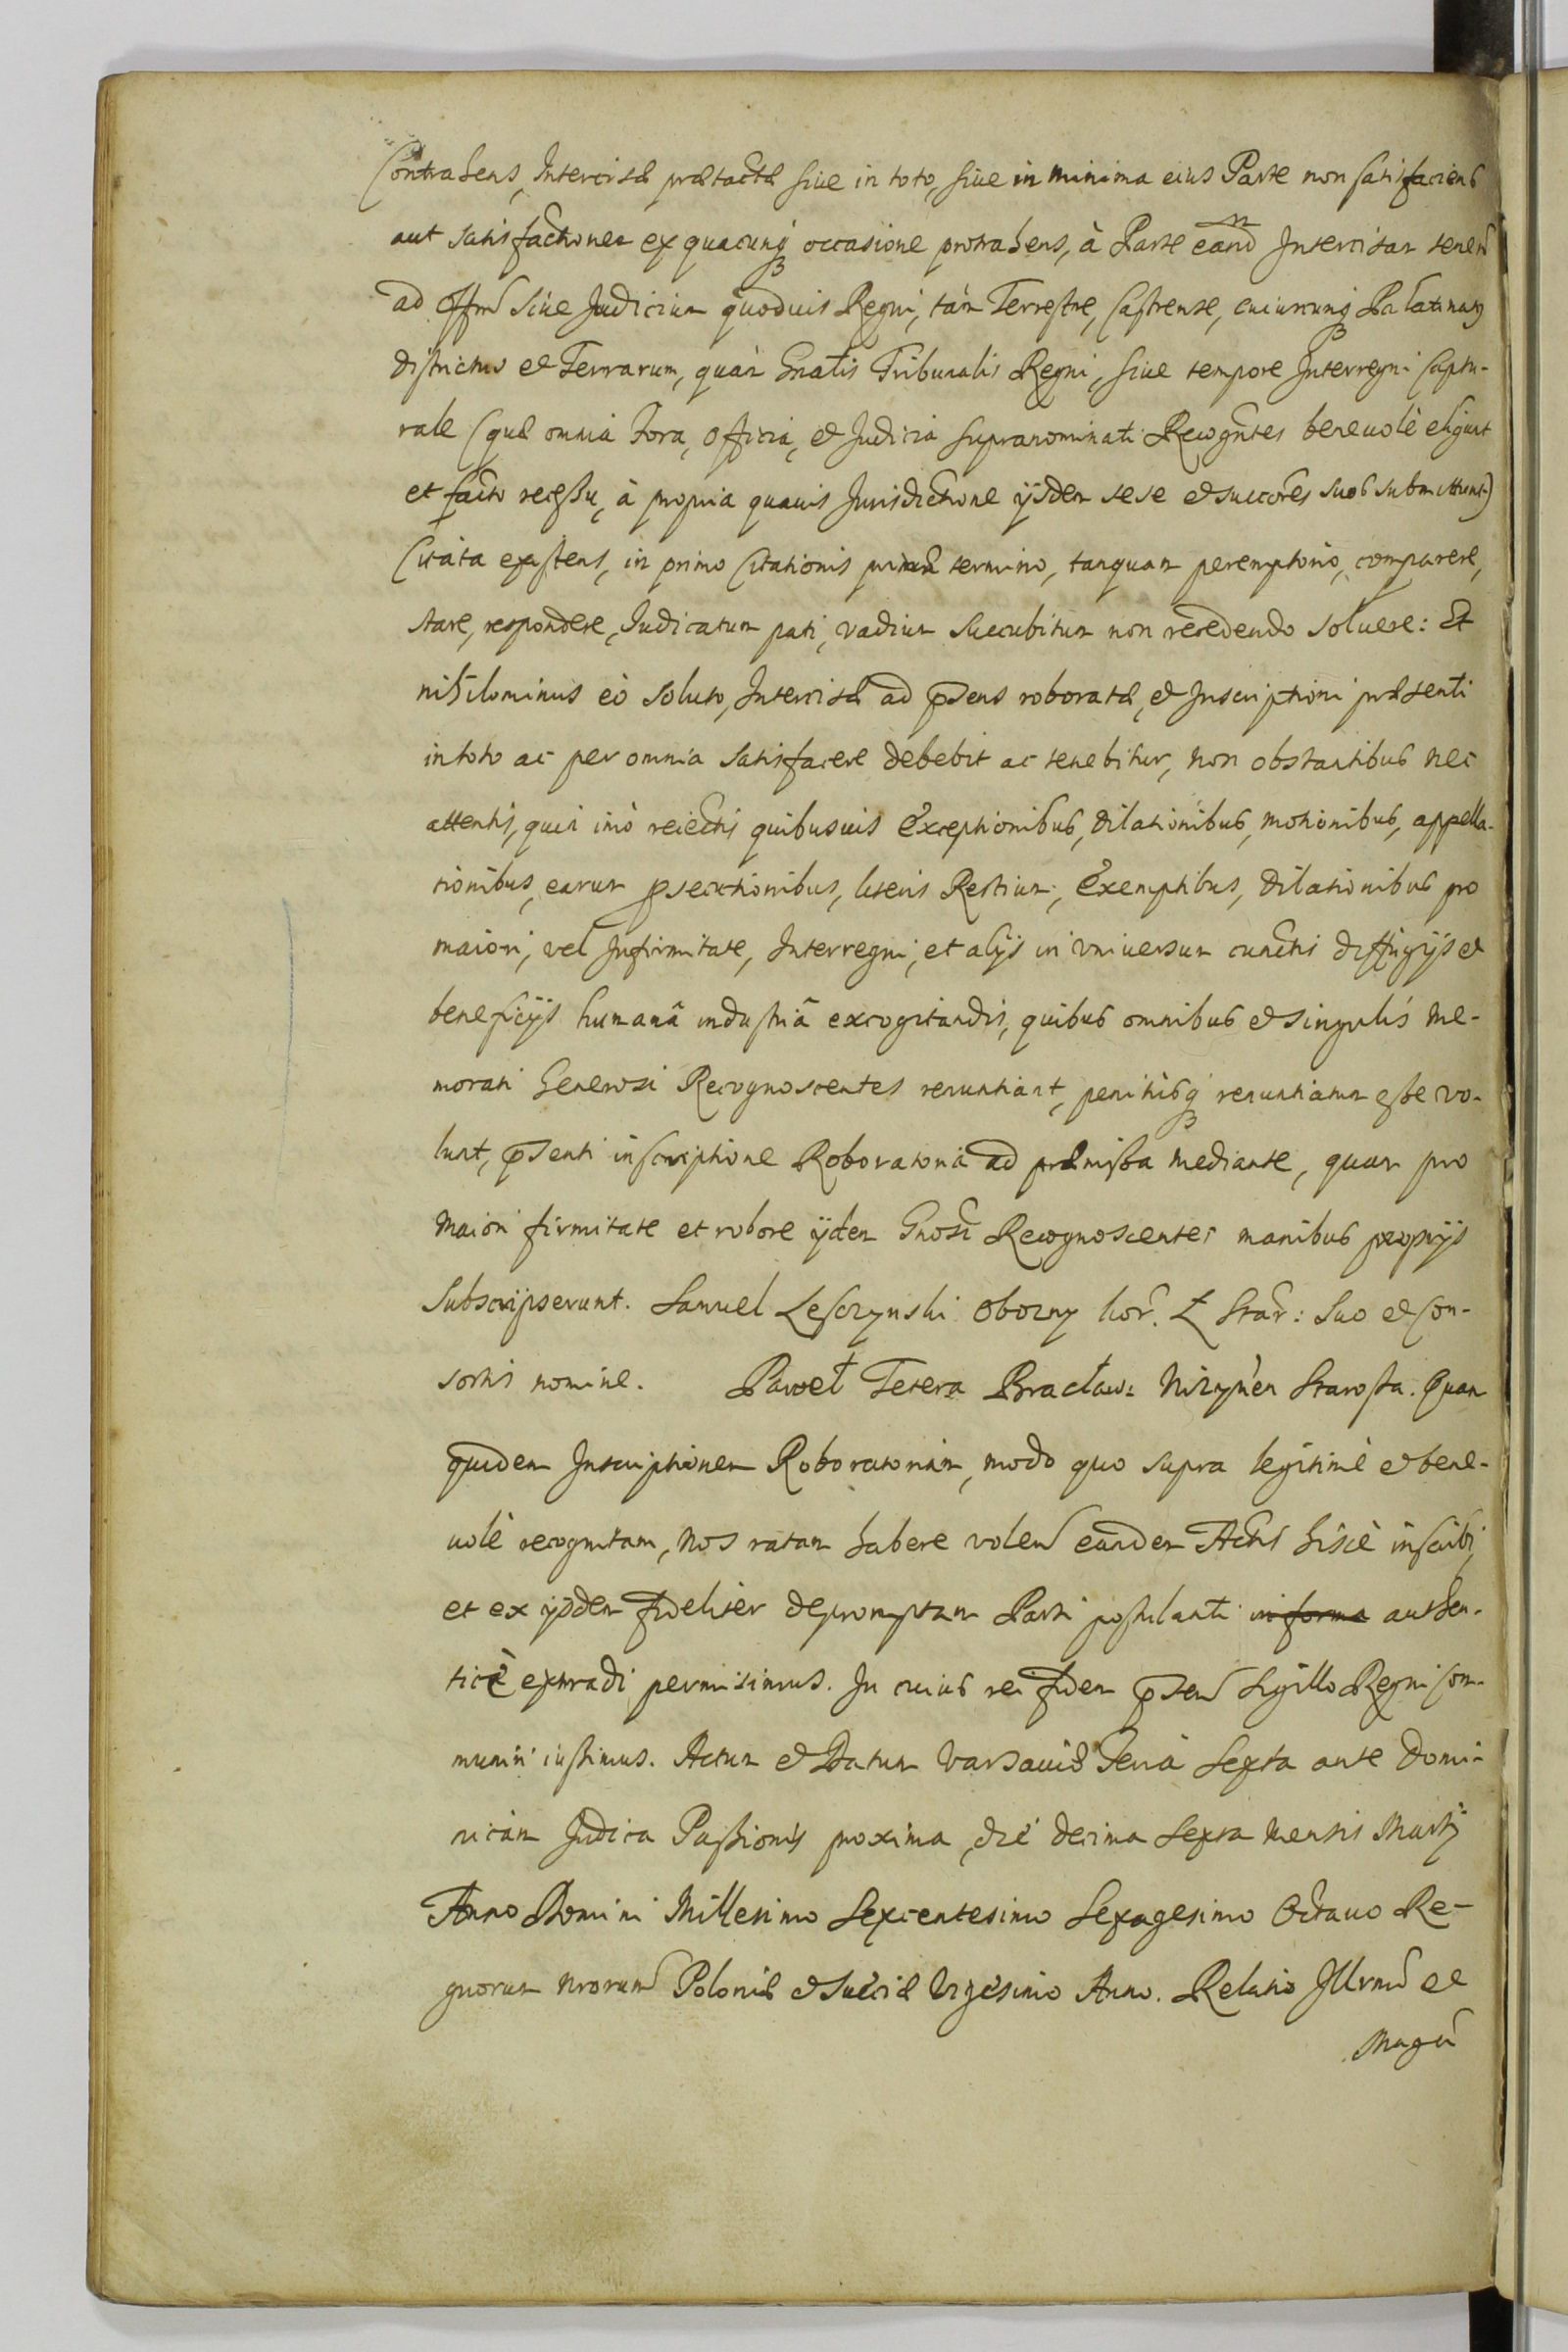 Contrahens, Intercisæ prætactæ siue in toto, siue in minima eius Parte non satisfaciens
aut satisfactionem ex quacunq occasione protrahens, à Parte eand Intercisam tenen
ad Offm siue Judicium quoduis Regni, tàm Terrestre, Castrense, cuiuscunq Palatinatus
districtus et Terrarum, quàm Gnalis Tribunalis Regni, siue tempore Interregni Captu-
rale (quæ omnia Fora, Officia, et Judicia supranominati Recogntes beneuolè eligunt
et facto recessu, à propria quauis Jurisdictione ijsdem sese et succores suos submittunt)
Citata existens, in primo Citationis termino, tanquam peremptorio, comparere,
stare, respondere, Judicatum pati, vadium succubitum non recedendo soluere: Et
nihilominus eò soluto, Intercisæ ad psens roboratæ, et Inscriptioni præsenti
in toto ac per omnia satisfacere debebit ac tenebitur, non obstantibus nec
attentis, quin imò reiectis quibusuis exceptionibus, dilationibus, motionibus, appella-
tionibus, earum psecutionibus, literis Restium, Exemptibus, dilationibus pro
maiori, vel Infirmitate, Interregni, et alijs in vniuersum cunctis diffugijs et
beneficijs humanâ industriâ excogitandis, quibus omnibus et singulis me-
morati Generosi Recognoscentes renuntiant, penitùsq renuntiatum esse vo-
lunt, psenti inscriptione Roboratoria ad præmissa mediante, quam pro
maiori firmitate et robore ijdem Gnosi Recognoscentes manibus proprijs
Subscripserunt. Samuel Lesczynski Obozny kor. Ł Star: Suo et con-
sortis nomine. Paweł Tetera Bracław: Nizynen Starosta. Quam
quidem Inscriptionem Roboratoriam, modo quo supra legitimè et bene-
uolè recognitam, Nos ratam habere volen eandem Actis hisce inscribi,
et ex ijsdem fideliter depromptam Parti postulanti in forma authen-
ticè extradi permisimus. In cuius rei fidem psen Sigillo Regni com-
muniri iussimus. Actum et Datum Varsauiæ Feria Sexta ante Domi-
nicam Judica Passionis proxima, die decima Sexta mensis Martij
Anno Domini Millesimo Sexcentesimo Sexagesimo Octauo Re-
gnorum nrorum Poloniæ et Sueciæ Vigesimo Anno. Relatio Illrmi et
Magci